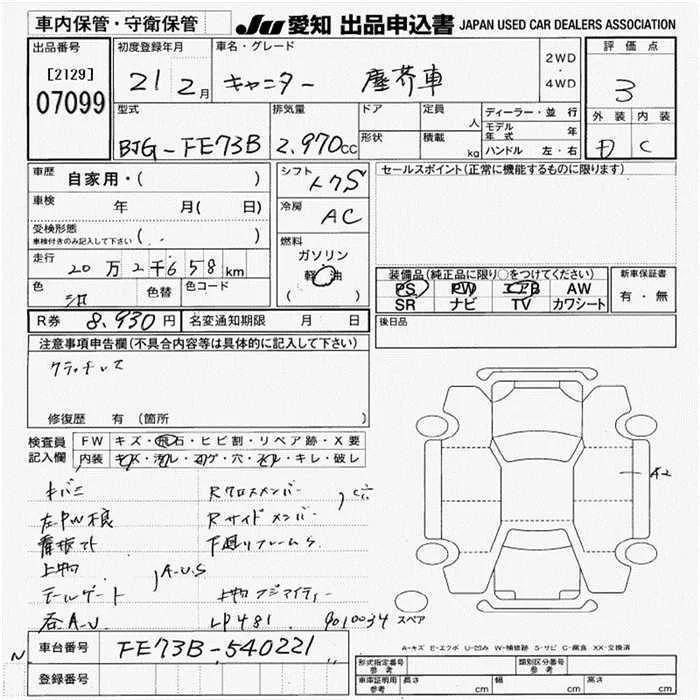 車内保管・守衛保管
JU 愛知 出品申込書 JAPAN USED CAR DEALERS ASSOCIATION
出品番号
[2129]
07099
初度登録年月
21 2月
車名・グレード
キャンター 塵芥車
2WD
・
4WD
評価点
3
外装 内装
C
型式
BJG-FE73B
排気量
2.970cc
ドア
形状
定員 人
積載 kg
ディーラー・並行
モデル年式 年
ハンドル 左・右
車歴 自家用・( )
車検 年 月( 日)
受検形態
車検付きのみ記入して下さい ( )
走行 20万2千658km
色 シロ 色替 色コード
シフト
冷房 AC
燃料
ガソリン
軽油
( )
セールスポイント(正常に機能するものに限ります)
装備品(純正品に限り○をつけてください)
PS PW エアB AW
SR ナビ TV カワシート
新車保証書
有・無
R券 8,930円 名変通知期限 月 日
後日品
注意事項申告欄(不具合内容等は具体的に記入して下さい)
クラッチレス
修復歴 有(箇所 )
検査員記入欄
FW キズ・飛石・ヒビ割・リペア跡・X要
内装 キズ・汚レ・コゲ・穴・スレ・キレ・破レ
Rクロスメンバー
左PW不良
Rサイドメンバー
下廻りフレームS
上物
A・U・S
テールゲート
上物フジマイティー
各A.U
LP481 9010034
A2
スペア
A-キズ E-エクボ U-凹み W-補修跡 S-サビ C-腐食 XX-交換済
車台番号 FE73B-540221
登録番号
型式指定番号 参考
類別区分番号 参考
車庫証明用 参考 長さ cm 幅 cm 高さ cm